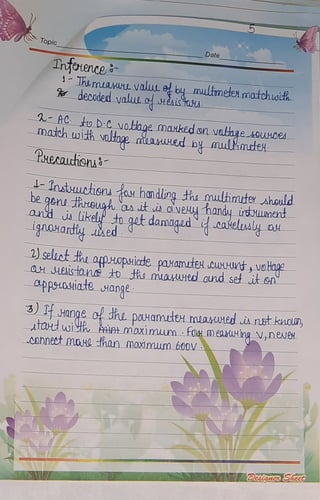 5
Topic
Date
Inference :-
1- The measure value of by multimeter match with
decoded value of resistors.
2- AC to D.C voltage marked on voltage sources
match with voltage measured by multimeter
Precautions :-
1- Instructions for handling the multimeter should
be gone through as it is a very handy instrument
and is likely to get damaged if carelessly or
ignorantly used.
2) select the appropriate parameter current, voltage
or resistance to the measured and set it on
appropriate range.
3) If range of the parameter measured is not known,
start with maximum. For measuring V, never
connect more than maximum 600V.
Designer Sheet